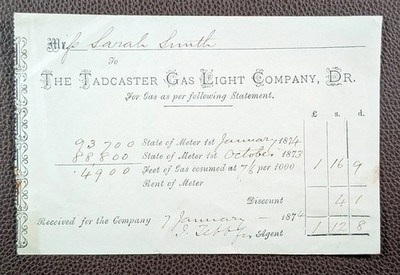 Mrs Sarah Smith
To
THE TADCASTER GAS LIGHT COMPANY, DR.
For Gas as per following Statement.
£ s. d.
93700 State of Meter 1st January 1874
88800 State of Meter 1st October 1873
4900 Feet of Gas consumed at 7/6 per 1000 1 16 9
Rent of Meter
Discount 4 1
Received for the Company 7 January 1874 1 12 8
Agent